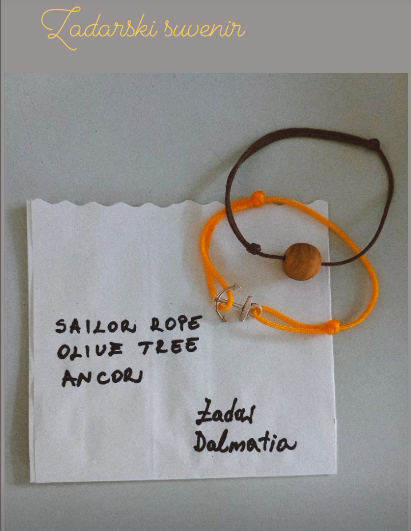 Zadarski suvenir
SAILOR ROPE
OLIVE TREE
ANCOR
Zadar
Dalmatia